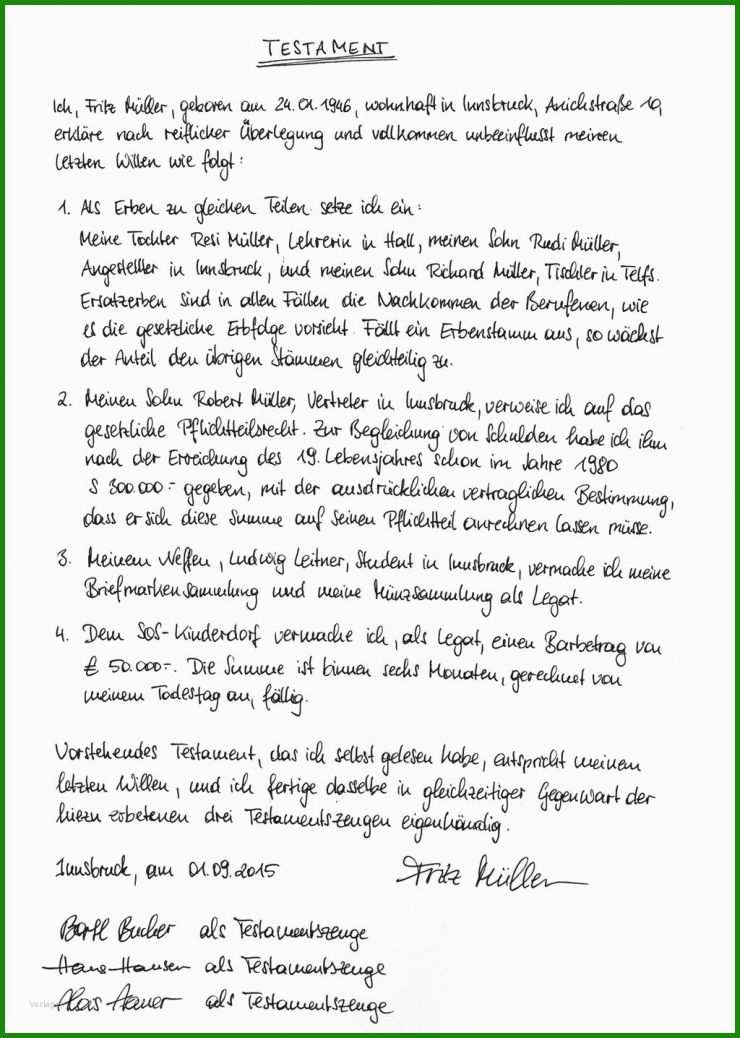 TESTAMENT
Ich, Fritz Müller, geboren am 24.01.1946, wohnhaft in Innsbruck, Anichstraße 10,
erkläre nach reiflicher Überlegung und vollkommen unbeeinflusst meinen
letzten Willen wie folgt:
1. Als Erben zu gleichen Teilen setze ich ein:
Meine Tochter Resi Müller, Lehrerin in Hall, meinen Sohn Rudi Müller,
Angestellter in Innsbruck, und meinen Sohn Richard Müller, Tischler in Telfs.
Ersatzerben sind in allen Fällen die Nachkommen der Berufenen, wie
es die gesetzliche Erbfolge vorsieht. Fällt ein Erbenstamm aus, so wächst
der Anteil den übrigen Stämmen gleichteilig zu.
2. Meinen Sohn Robert Müller, Vertreter in Innsbruck, verweise ich auf das
gesetzliche Pflichtteilsrecht. Zur Begleichung von Schulden habe ich ihm
nach der Erreichung des 19. Lebensjahres schon im Jahre 1980
S 300.000.- gegeben, mit der ausdrücklichen vertraglichen Bestimmung,
dass er sich diese Summe auf seinen Pflichtteil anrechnen lassen müsse.
3. Meinem Neffen, Ludwig Leitner, Student in Innsbruck, vermache ich meine
Briefmarkensammlung und meine Münzsammlung als Legat.
4. Dem SOS-Kinderdorf vermache ich, als Legat, einen Barbetrag von
€ 50.000-. Die Summe ist binnen sechs Monaten, gerechnet von
meinem Todestag an, fällig.
Vorstehendes Testament, das ich selbst gelesen habe, entspricht meinem
letzten Willen, und ich fertige dasselbe in gleichzeitiger Gegenwart der
hiezu erbetenen drei Testamentszeugen eigenhändig.
Innsbruck, am 01.09.2015 Fritz Müller
Bartl Bucher als Testamentszeuge
Hans Hansen als Testamentszeuge
Alois Auer als Testamentszeuge
Verlag